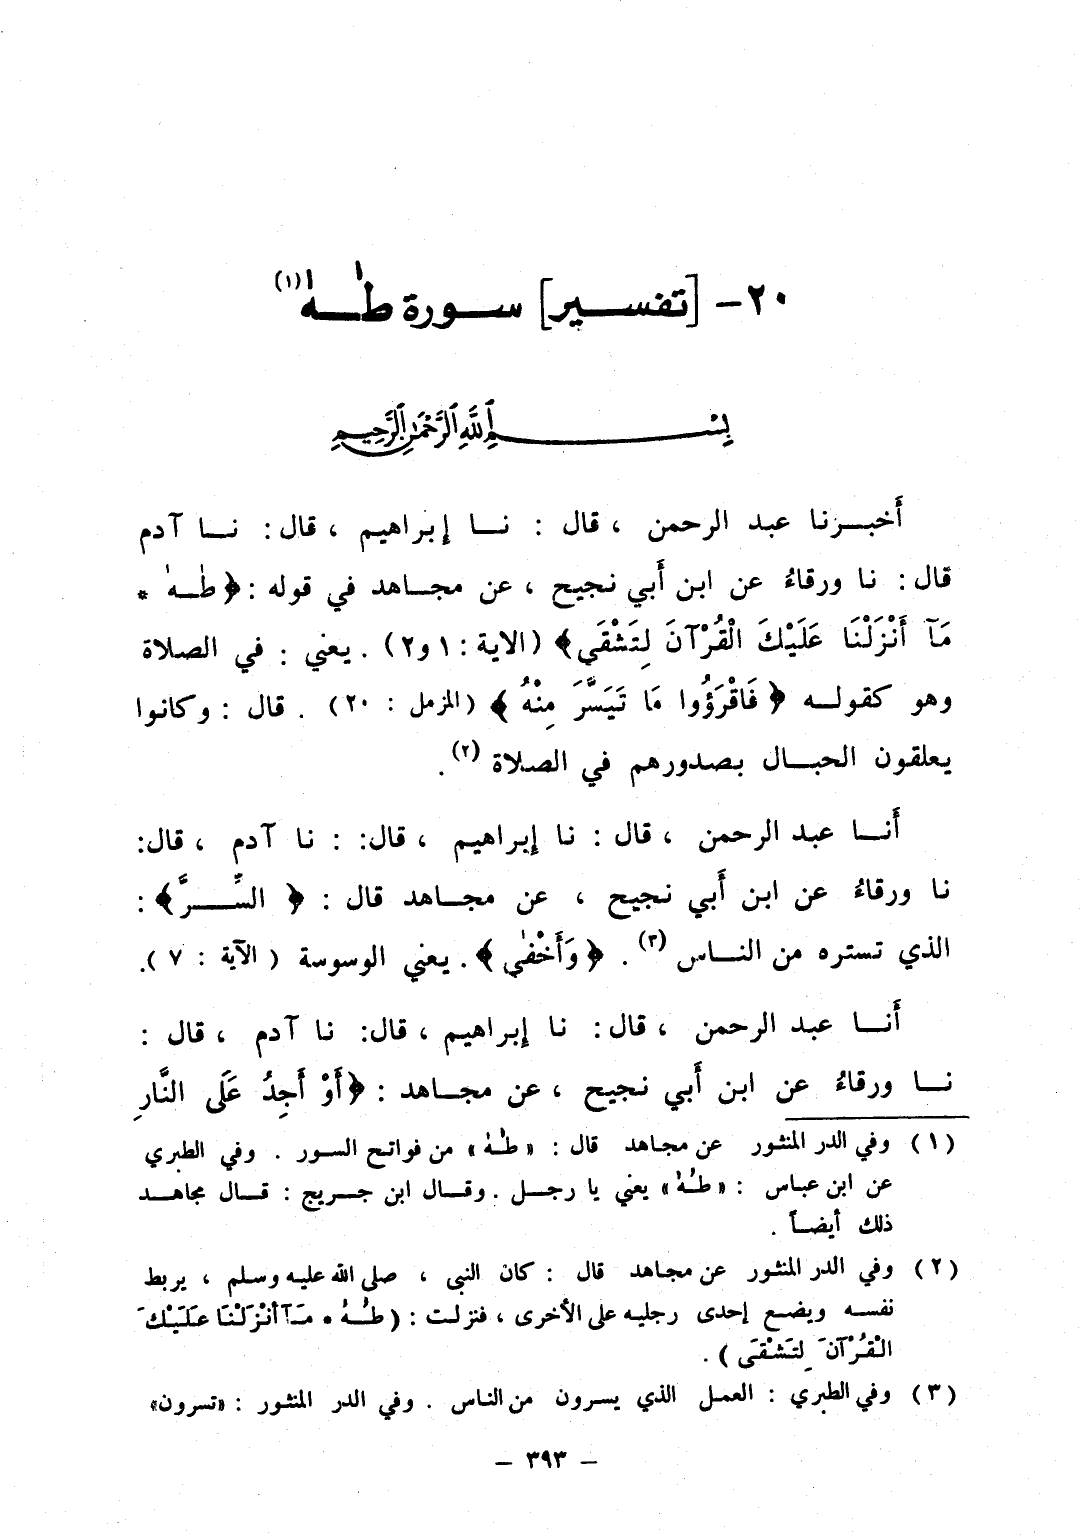 ٢٠ - [تفسير] سورة طٰهٰ (١)
بِسْمِ اللَّهِ الرَّحْمَٰنِ الرَّحِيمِ
أخبرنا عبد الرحمن ، قال : نا إبراهيم ، قال : نا آدم
قال : نا ورقاءُ عن ابن أبي نجيح ، عن مجاهد في قوله : ﴿ طٰهٰ *
مَآ أَنْزَلْنَا عَلَيْكَ الْقُرْآنَ لِتَشْقَى ﴾ (الاية : ١ و٢) . يعني : في الصلاة
وهو كقوله ﴿ فَاقْرَؤُوا مَا تَيَسَّرَ مِنْهُ ﴾ (المزمل : ٢٠) . قال : وكانوا
يعلقون الحبال بصدورهم في الصلاة (٢) .
أنا عبد الرحمن ، قال : نا إبراهيم ، قال: : نا آدم ، قال:
نا ورقاءُ عن ابن أبي نجيح ، عن مجاهد قال : ﴿ السِّرَّ ﴾ :
الذي تستره من الناس (٣) . ﴿ وَأَخْفٰى ﴾ . يعني الوسوسة ( الآية : ٧ ).
أنا عبد الرحمن ، قال : نا إبراهيم ، قال: نا آدم ، قال :
نا ورقاءُ عن ابن أبي نجيح ، عن مجاهد : ﴿ أَوْ أَجِدُ عَلَى النَّارِ
(١) وفي الدر المنثور عن مجاهد قال : « طٰهٰ » من فواتح السور . وفي الطبري
عن ابن عباس : « طٰهٰ » يعني يا رجل . وقال ابن جريج : قال مجاهد
ذلك أيضاً .
(٢) وفي الدر المنثور عن مجاهد قال : كان النبى ، صلى الله عليه وسلم ، يربط
نفسه ويضع إحدى رجليه على الأخرى ، فنزلت : ( طٰهٰ * مَآ أنْزَلْنَا عَلَيْكَ
الْقُرْآنَ لِتَشْقَى ) .
(٣) وفي الطبري : العمل الذي يسرون من الناس . وفي الدر المنثور : «تسرون»
- ٣٩٣ -